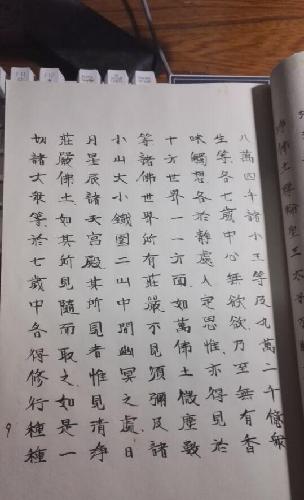 八萬四千諸小王等及九萬二千億眾
生等各七歲中心無欲欲乃至無有香
味觸想各於靜處入定思惟亦得見於
十方世界一一方面如萬佛土微塵數
等諸佛世界所有莊嚴不見須彌及諸
小山大小鐵圍二山中間幽冥之處日
月星辰諸天宮殿其所見者惟見清淨
莊嚴佛土如其所見隨而取之如是一
切諸大眾等於七歲中各得修行種種
9